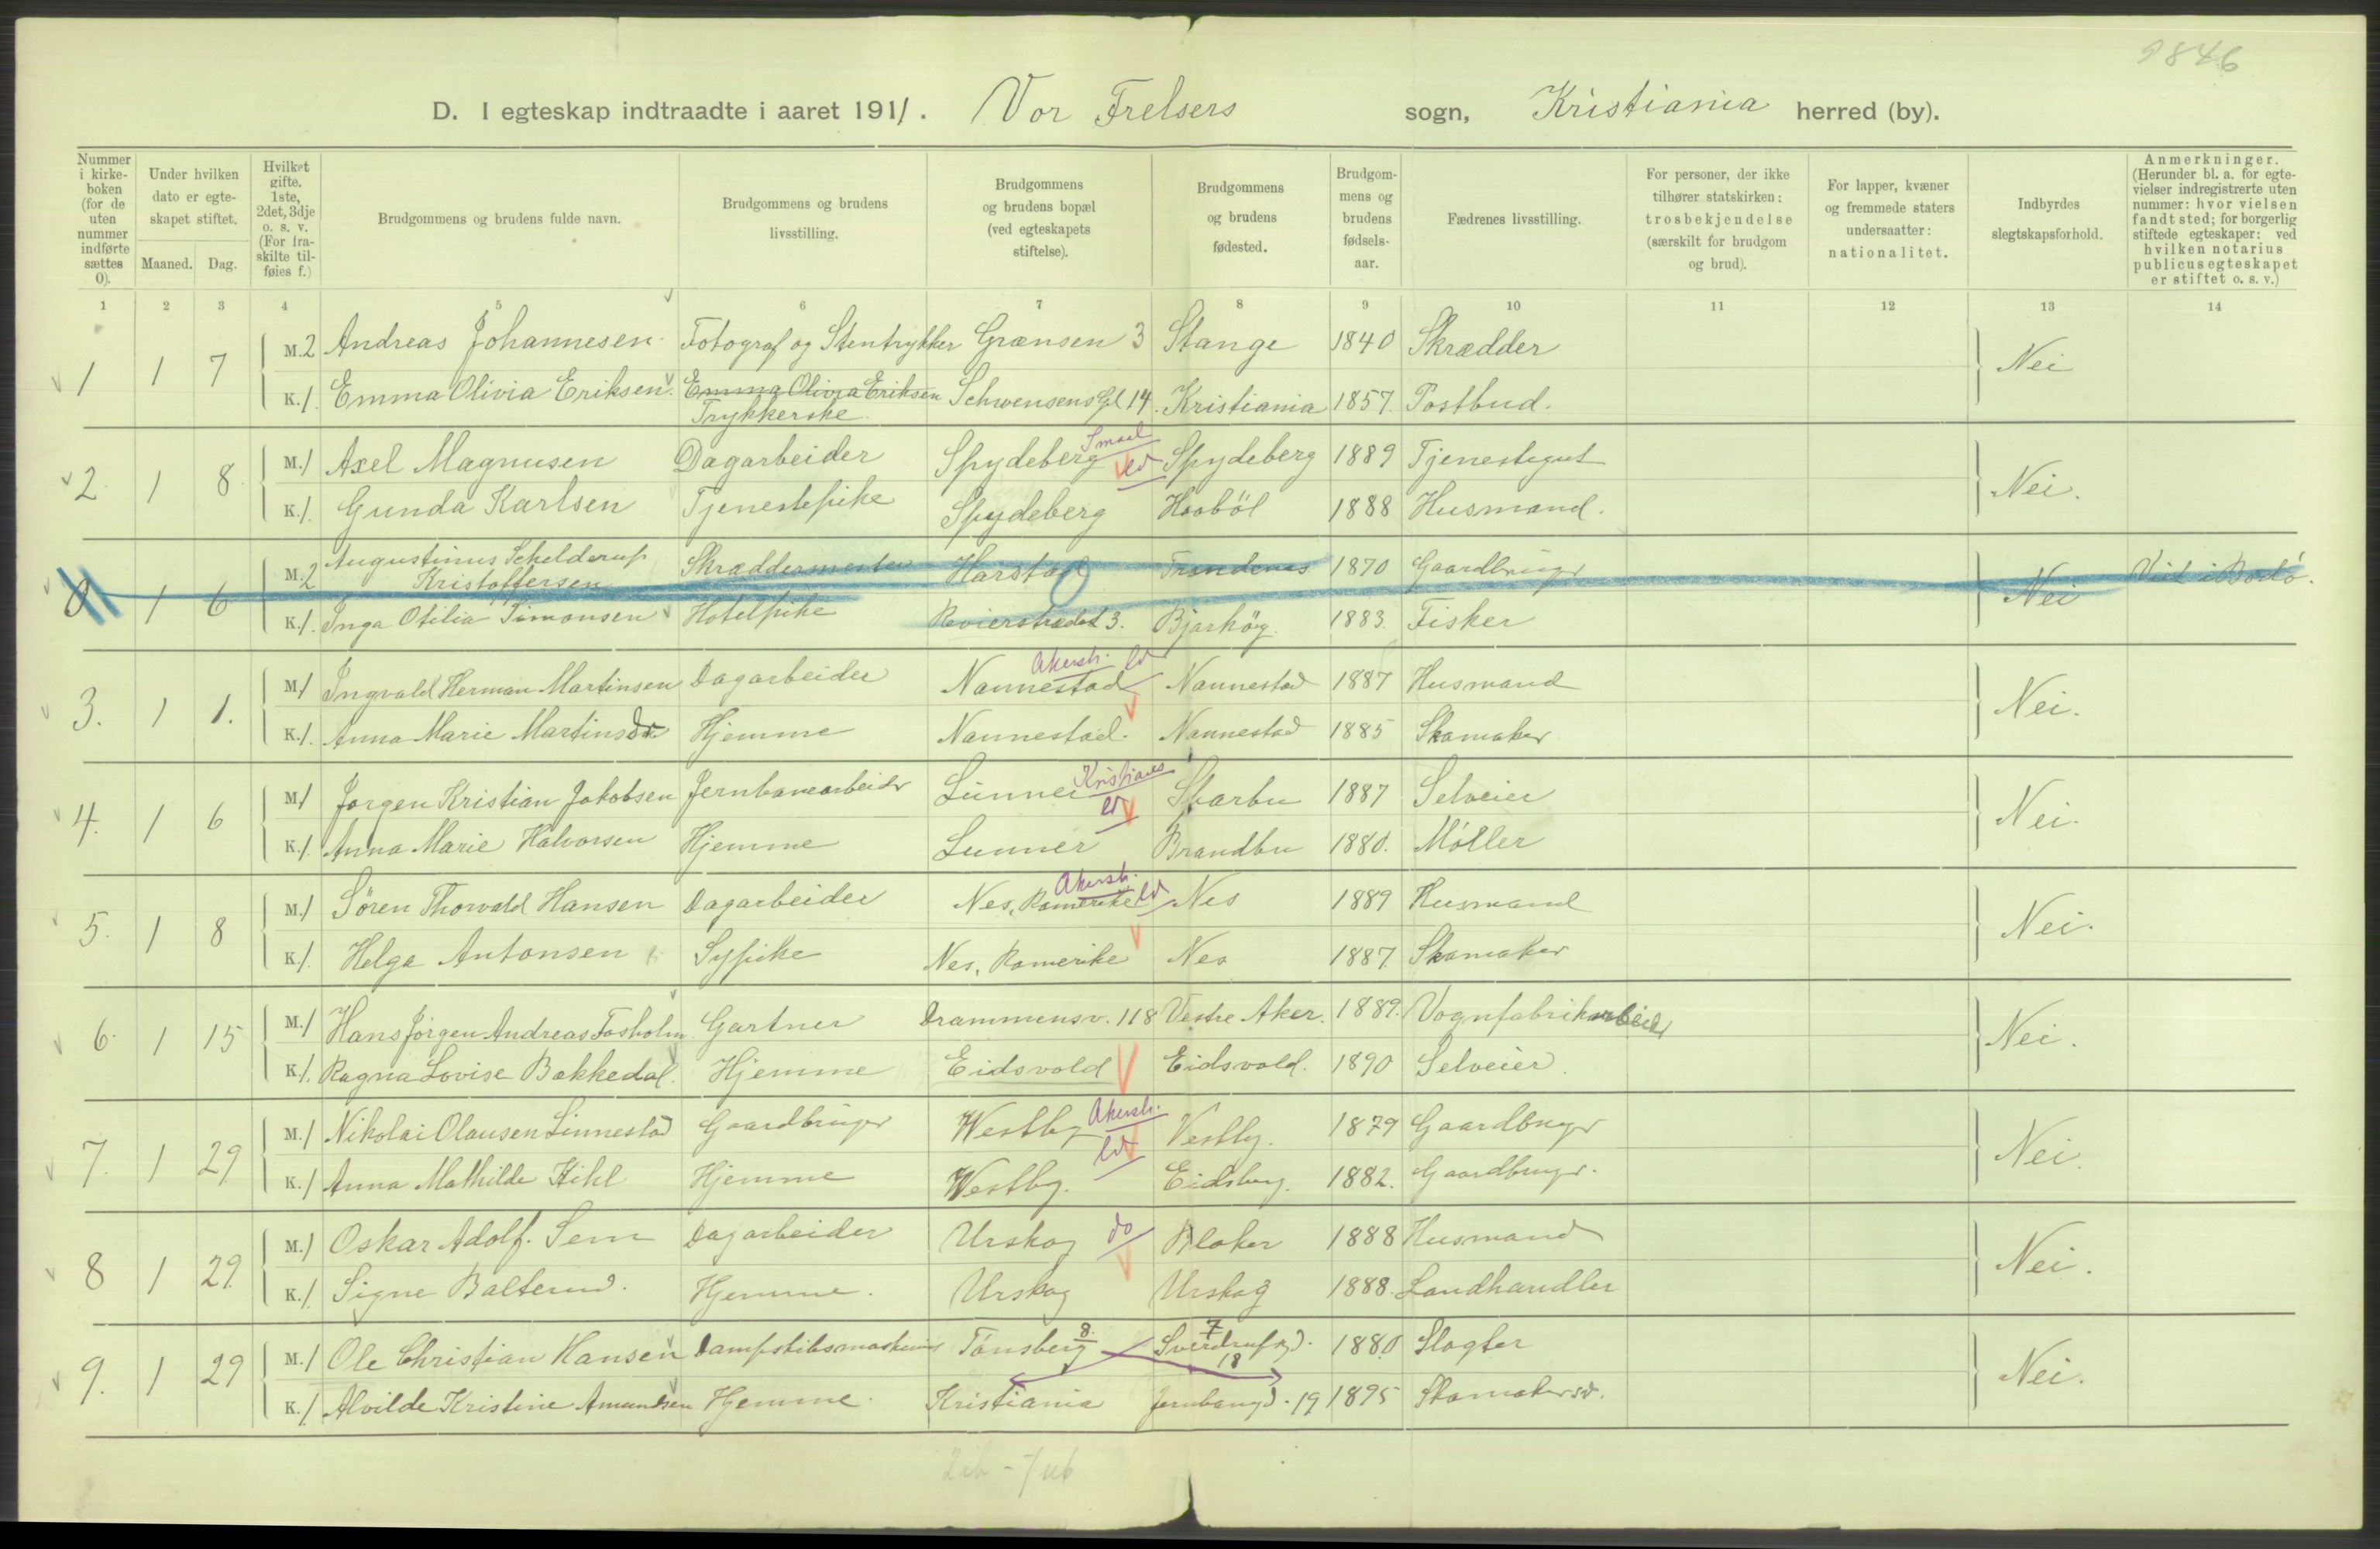 9846
D. I egteskap indtraadte i aaret 1911. Vor Frelsers sogn, Kristiania herred (by).
Nummer i kirke-boken (for de uten nummer indførte sættes 0). Under hvilken dato er egte-skapet stiftet. Maaned. Dag. Hvilket gifte. 1ste, 2det, 3dje o. s. v. (For fra-skilte til-føies f.) Brudgommens og brudens fulde navn. Brudgommens og brudens livsstilling. Brudgommens og brudens bopæl (ved egteskapets stiftelse). Brudgommens og brudens fødested. Brudgom-mens og brudens fødsels-aar. Fædrenes livsstilling. For personer, der ikke tilhører statskirken: trosbekjendelse (særskilt for brudgom og brud). For lapper, kvæner og fremmede staters undersaatter: nationalitet. Indbyrdes slegtskapsforhold. Anmerkninger. (Herunder bl. a. for egte-vielser indregistrerte uten nummer: hvor vielsen fandt sted; for borgerlig stiftede egteskaper: ved hvilken notarius publicus egteskapet er stiftet o. s. v.)
1 2 3 4 5 6 7 8 9 10 11 12 13 14
1 1 7 M. 2 Andreas Johannesen Fotograf og Stentrykker Grænsen 3 Stange 1840 Skrædder Nei
K. 1. Emma Olivia Eriksen Emma Olivia Eriksen Schwensens Gd 14. Kristiania 1857. Postbud.
Trykkerske.
Smaal
2. 1 8. M. 1 Axel Magnusen Dagarbeider Spydeberg ld Spydeberg 1889 Tjenestegut Nei.
K. 1. Gunda Karlsen Tjenestepike Spydeberg Haaböl 1888 Husmand.
0 1 6 M. 2 Augustinus Schelderup Kristoffersen Skræddermester Harstad Trondenes 1870 Gaardbruger Nei Viet i Bodö.
K. 1. Inga Otilia Simonsen Hotelpike Revierstrædet 3. Bjarköy. 1883. Fisker
Akersh. ld
3. 1 1. M. 1 Ingvald Herman Martinsen Dagarbeider Nannestad Nannestad 1887 Husmand Nei.
K. 1. Anna Marie Martinsdr. Hjemme Nannestad. Nannestad 1885 Skomaker
Kristians
4. 1 6 M. 1 Jørgen Kristian Jakobsen Jernbanearbeider Lunner ld Sparbu 1887 Selveier Nei.
K. 1. Anna Marie Halvorsen Hjemme Lunner Brandbu 1880. Möller
Akersh.
5. 1 8 M. 1 Sören Thorvald Hansen Dagarbeider Nes, Romerike ld Nes 1889 Husmand Nei.
K. 1. Helga Antonsen Sypike Nes, Romerike Nes 1887. Skomaker
6. 1 15 M. 1 Hans Jörgen Andreas Fosholm Gartner Drammensv. 118 Vestre Aker. 1889. Vognfabrikarbeid Nei.
K. 1. Ragna Lovise Bakkedal. Hjemme Eidsvold Eidsvold. 1890 Selveier.
7. 1 29 M. 1 Nikolai Olausen Linnestad Gaardbruger Westby Akersh. ld Vestby. 1879 Gaardbruger Nei.
K. 1 Anna Mathilde Kihl Hjemme Westby. Eidsberg. 1882. Gaardbruger.
8 1 29 M. 1 Oskar Adolf. Sem Dagarbeider Urskog do Blaker 1888 Husmand Nei.
K. 1. Signe Balterud. Hjemme. Urskog Urskog 1888. Landhandler
9. 1 29 M. 1 Ole Christian Hansen Dampskibsmaskinist Tönsberg 8. Sverdrupsgd. 7 18 1880 Slagter Nei.
K. 1 Alvilde Kristine Amundsen Hjemme. Kristiania Jernbangd. 19 1895 Skomakersv.